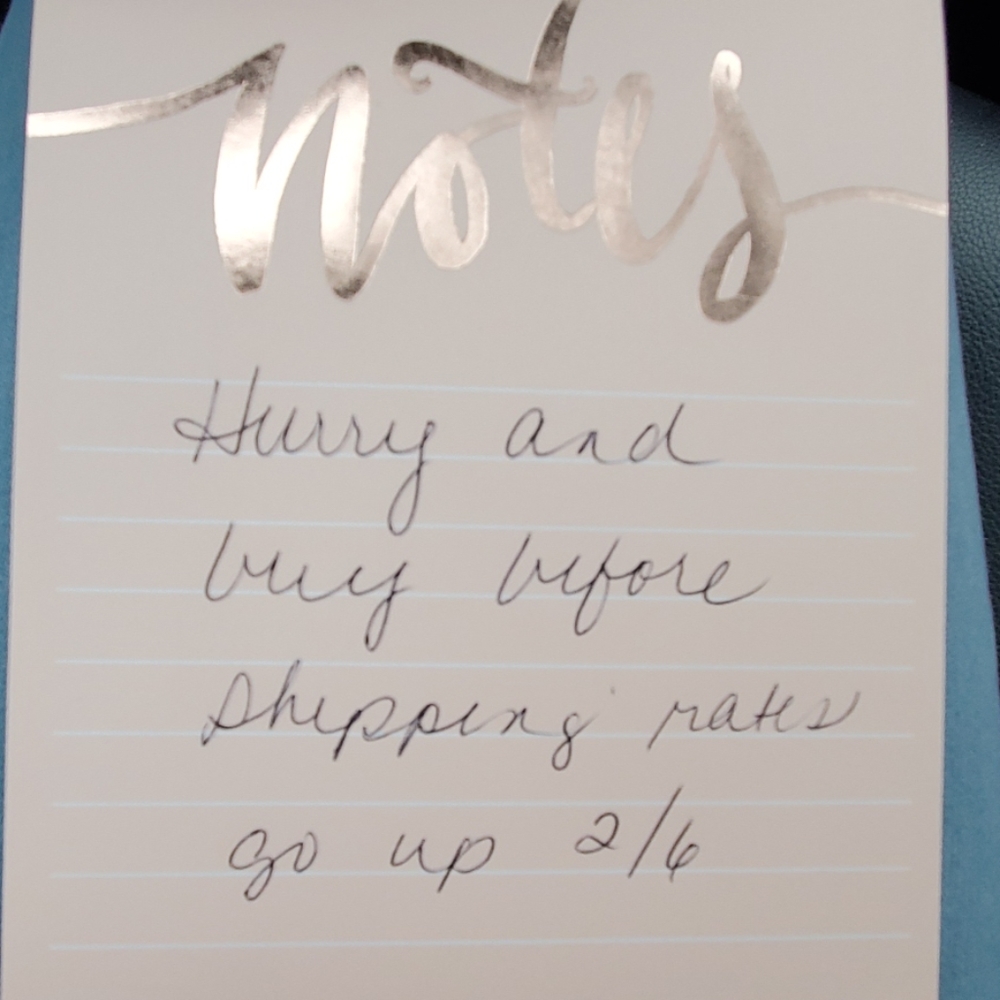 notes
Hurry and
buy before
shipping rates
go up 2/6